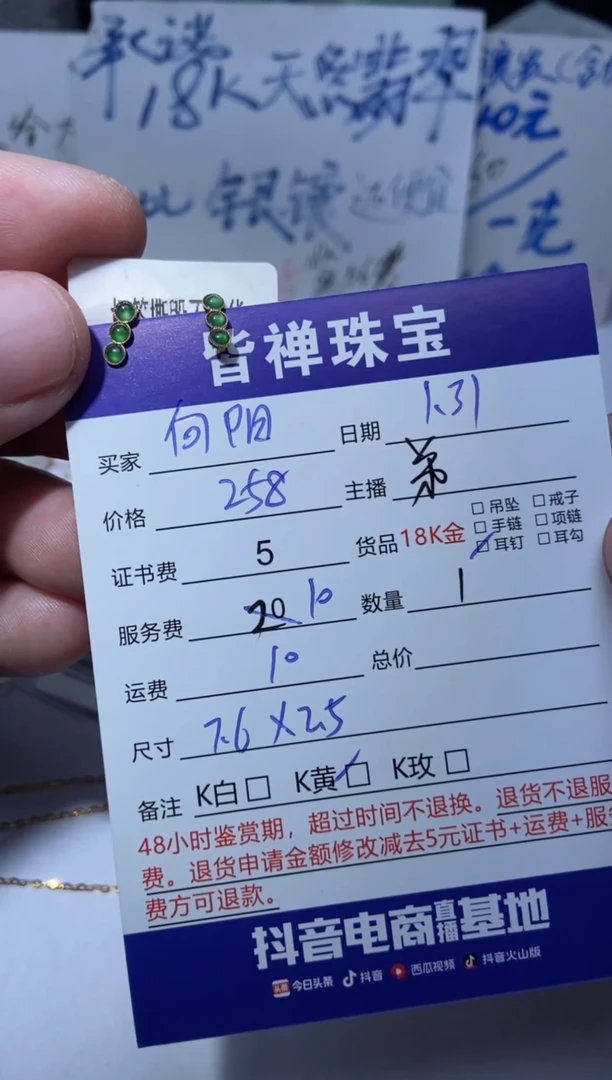 承诺
18K天然翡翠
比银镶还便宜
一克
皆禅珠宝
买家 向阳 日期 1.31
价格 258 主播 弟
证书费 5 货品 18K金 □吊坠 □戒子
□手链 □项链
□耳钉 □耳勾
服务费 20 10 数量 1
运费 10 总价
尺寸 7.6×2.5
备注 K白□ K黄□ K玫□
48小时鉴赏期，超过时间不退换。退货不退服
费。退货申请金额修改减去5元证书+运费+服务
费方可退款。
抖音电商直播基地
头条 今日头条 抖音 西瓜视频 抖音火山版